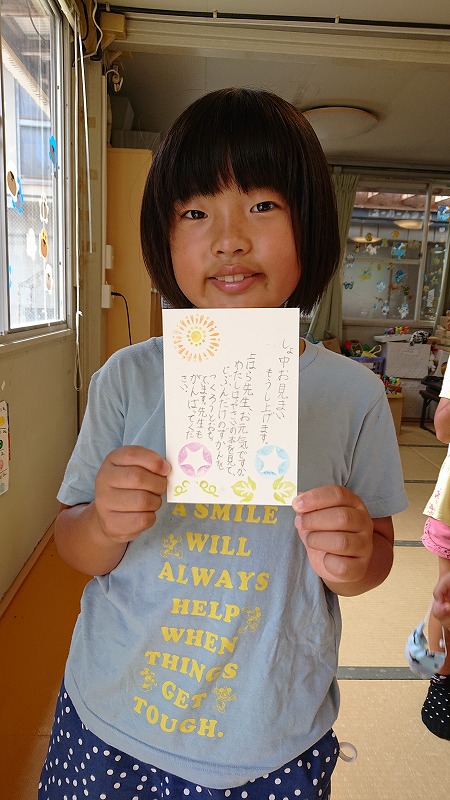 しょ中お見まい
もうし上げます。
先生、お元気ですか
わたしはやさいの本を見て、
じぶんだけのずかんを
つくろうとおもっ
てます。先生も
がんばてくだ
さい
A SMILE
WILL
ALWAYS
HELP
WHEN
THINGS
GET
TOUGH.